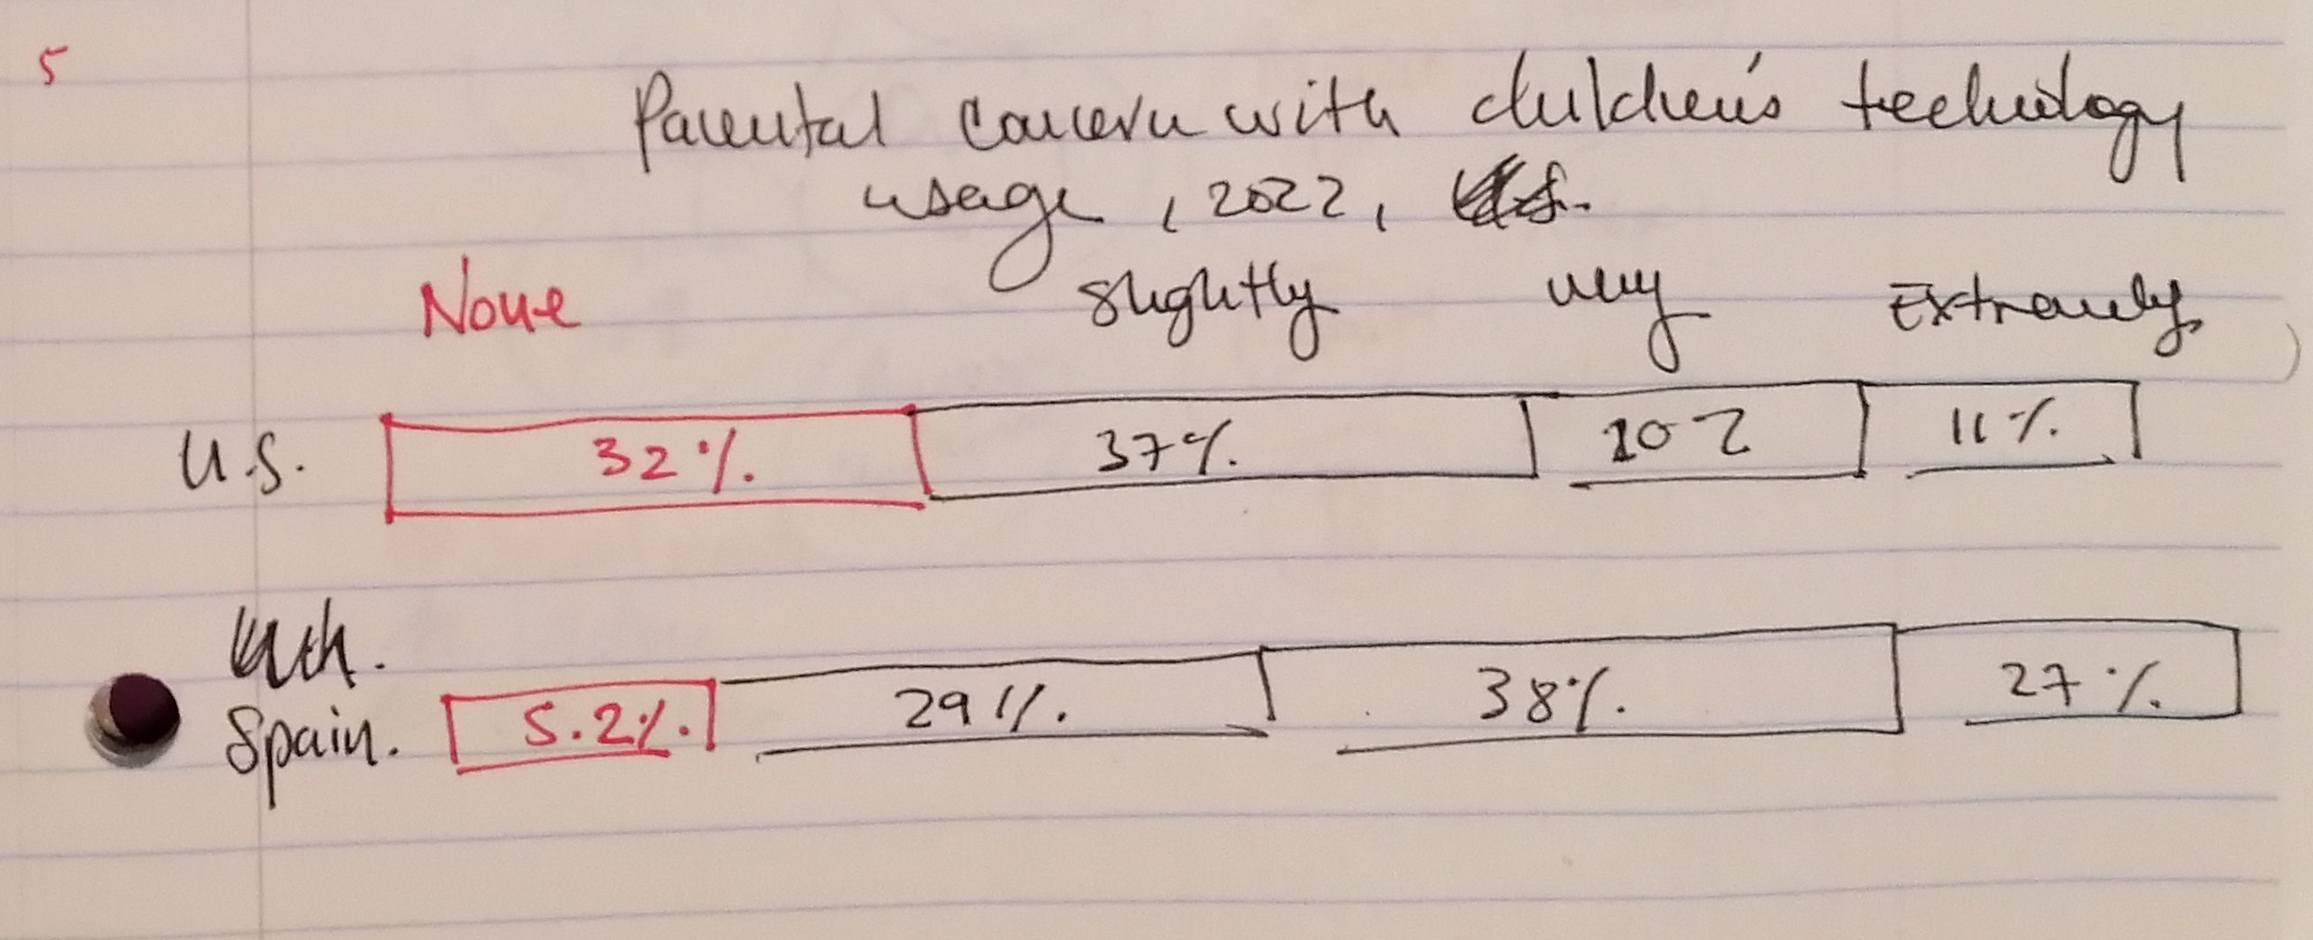 5
Parental concern with children's technology
usage, 2022,
None slightly very Extremely
U.S. 32% 37% 20% 11%
Spain. 5.2% 29% 38% 27%